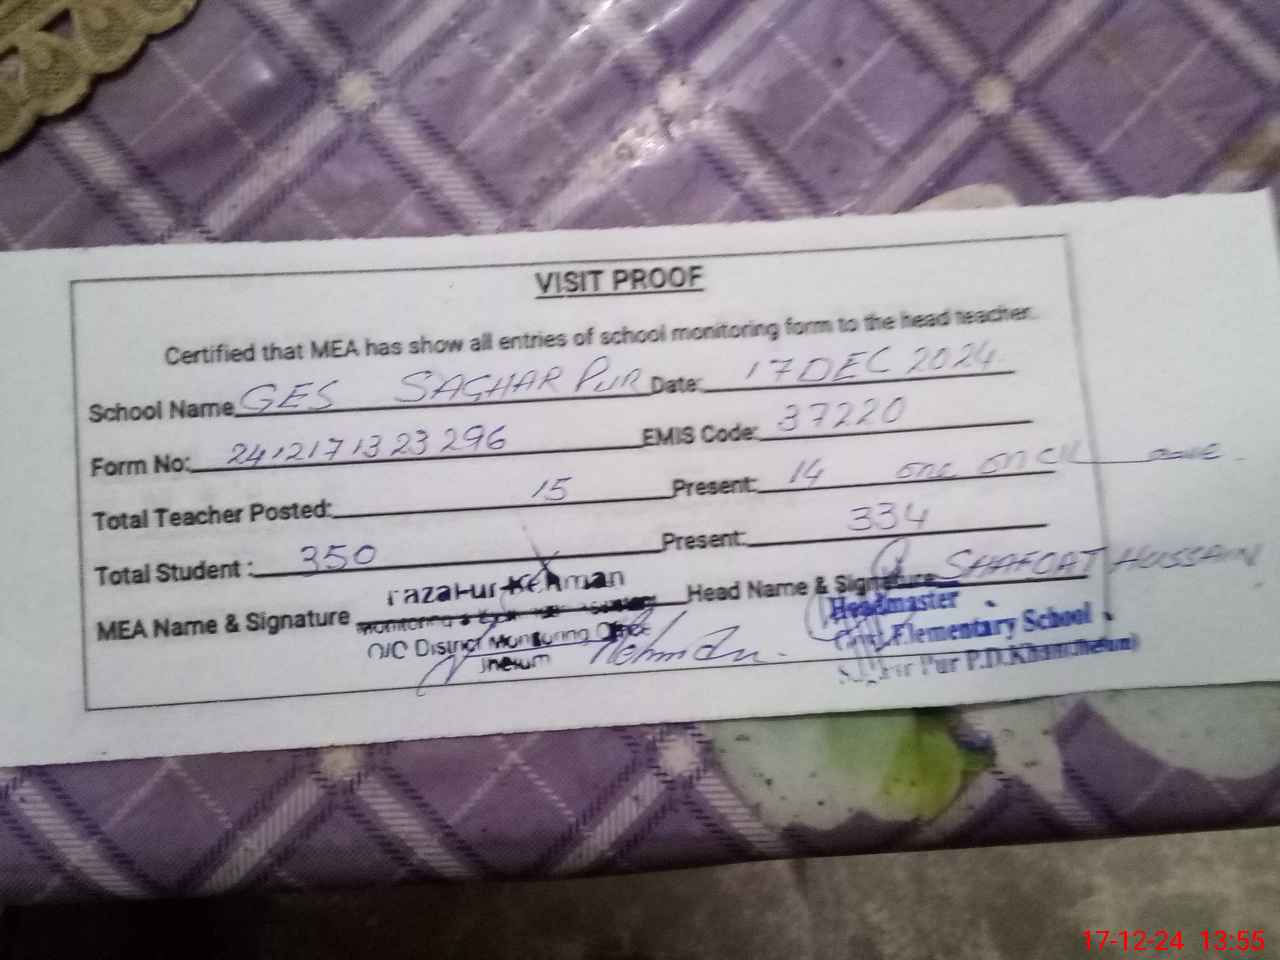 VISIT PROOF
Certified that MEA has show all entries of school monitoring form to the head teacher.
School Name GES SAGHAR PUR Date: 17 DEC 2024
Form No: 24121713 23 296 EMIS Code: 37220
Total Teacher Posted: 15 Present: 14 one on C/L
Total Student : 350 Present: 334
MEA Name & Signature Fazal-ur-Rehman Head Name & Signature SHAFQAT HUSSAIN
Monitoring &
O/C District Monitoring Office
Jhelum
Rehman
Headmaster
Govt. Elementary School
Saghar Pur P.D.Khan(Jhelum)
17-12-24 13:55